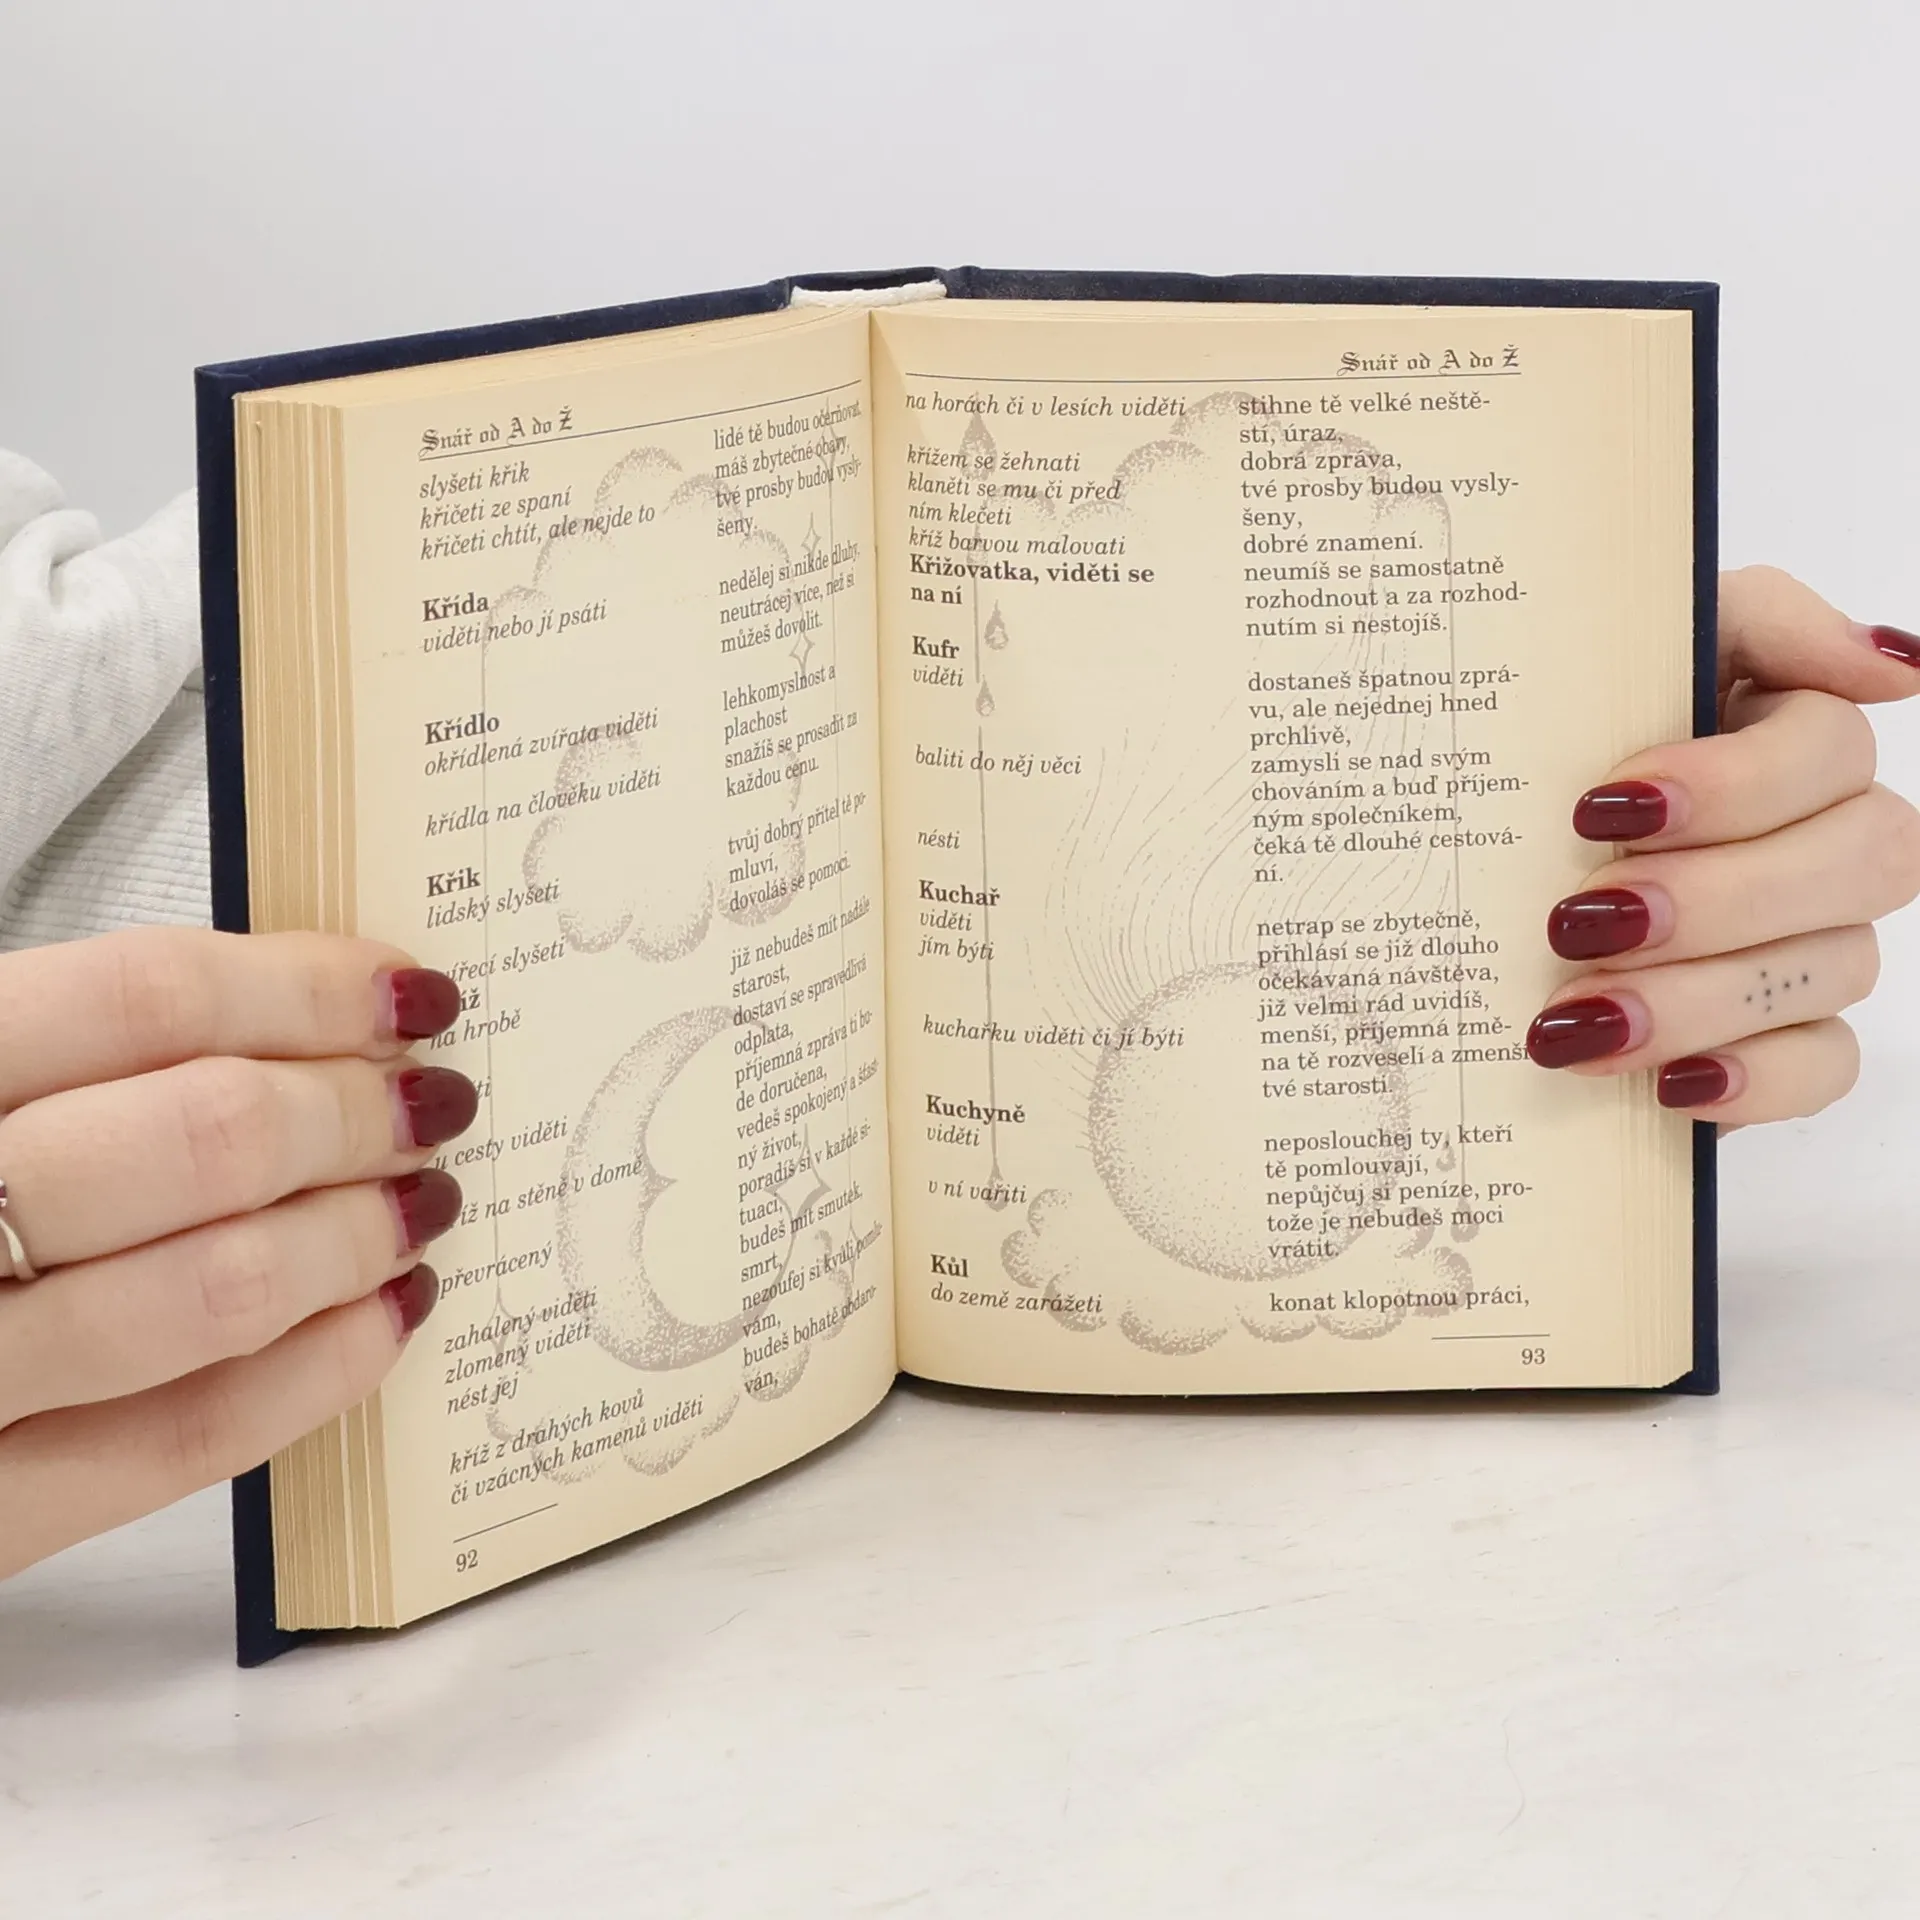 Snář od A do Ž
slyšeti křik
křičeti ze spaní
křičeti chtít, ale nejde to
Křída
viděti nebo jí psáti
Křídlo
okřídlená zvířata viděti
křídla na člověku viděti
Křik
lidský slyšeti
slyšeti
na hrobě
u cesty viděti
na stěně v domě
převrácený
zahalený viděti
zlomený viděti
nést jej
kříž z drahých kovů
či vzácných kamenů viděti
92
lidé tě budou očerňovat,
máš zbytečné obavy,
tvé prosby budou vysly-
šeny.
nedělej si nikde dluhy,
neutrácej více, než si
můžeš dovolit.
lehkomyslnost a
plachost
snažíš se prosadit za
každou cenu.
tvůj dobrý přítel tě po-
mluví,
dovoláš se pomoci.
již nebudeš mít nadále
starost,
dostaví se spravedlivá
odplata,
příjemná zpráva ti bu-
de doručena,
vedeš spokojený a šťast-
ný život,
poradíš si v každé si-
tuaci,
budeš mít smutek,
smrt,
nezoufej si kvůli pomlu-
vám,
budeš bohatě obdaro-
ván,
Snář od A do Ž
na horách či v lesích viděti
křížem se žehnati
klaněti se mu či před
ním klečeti
kříž barvou malovati
Křižovatka, viděti se
na ní
Kufr
viděti
baliti do něj věci
nésti
Kuchař
viděti
jím býti
kuchařku viděti či jí býti
Kuchyně
viděti
v ní vařiti
Kůl
do země zarážeti
stihne tě velké neště-
stí, úraz,
dobrá zpráva,
tvé prosby budou vysly-
šeny,
dobré znamení.
neumíš se samostatně
rozhodnout a za rozhod-
nutím si nestojíš.
dostaneš špatnou zprá-
vu, ale nejednej hned
prchlivě,
zamysli se nad svým
chováním a buď příjem-
ným společníkem,
čeká tě dlouhé cestová-
ní.
netrap se zbytečně,
přihlásí se již dlouho
očekávaná návštěva,
již velmi rád uvidíš,
menší, příjemná změ-
na tě rozveselí a zmenší
tvé starosti.
neposlouchej ty, kteří
tě pomlouvají,
nepůjčuj si peníze, pro-
tože je nebudeš moci
vrátit.
konat klopotnou práci,
93